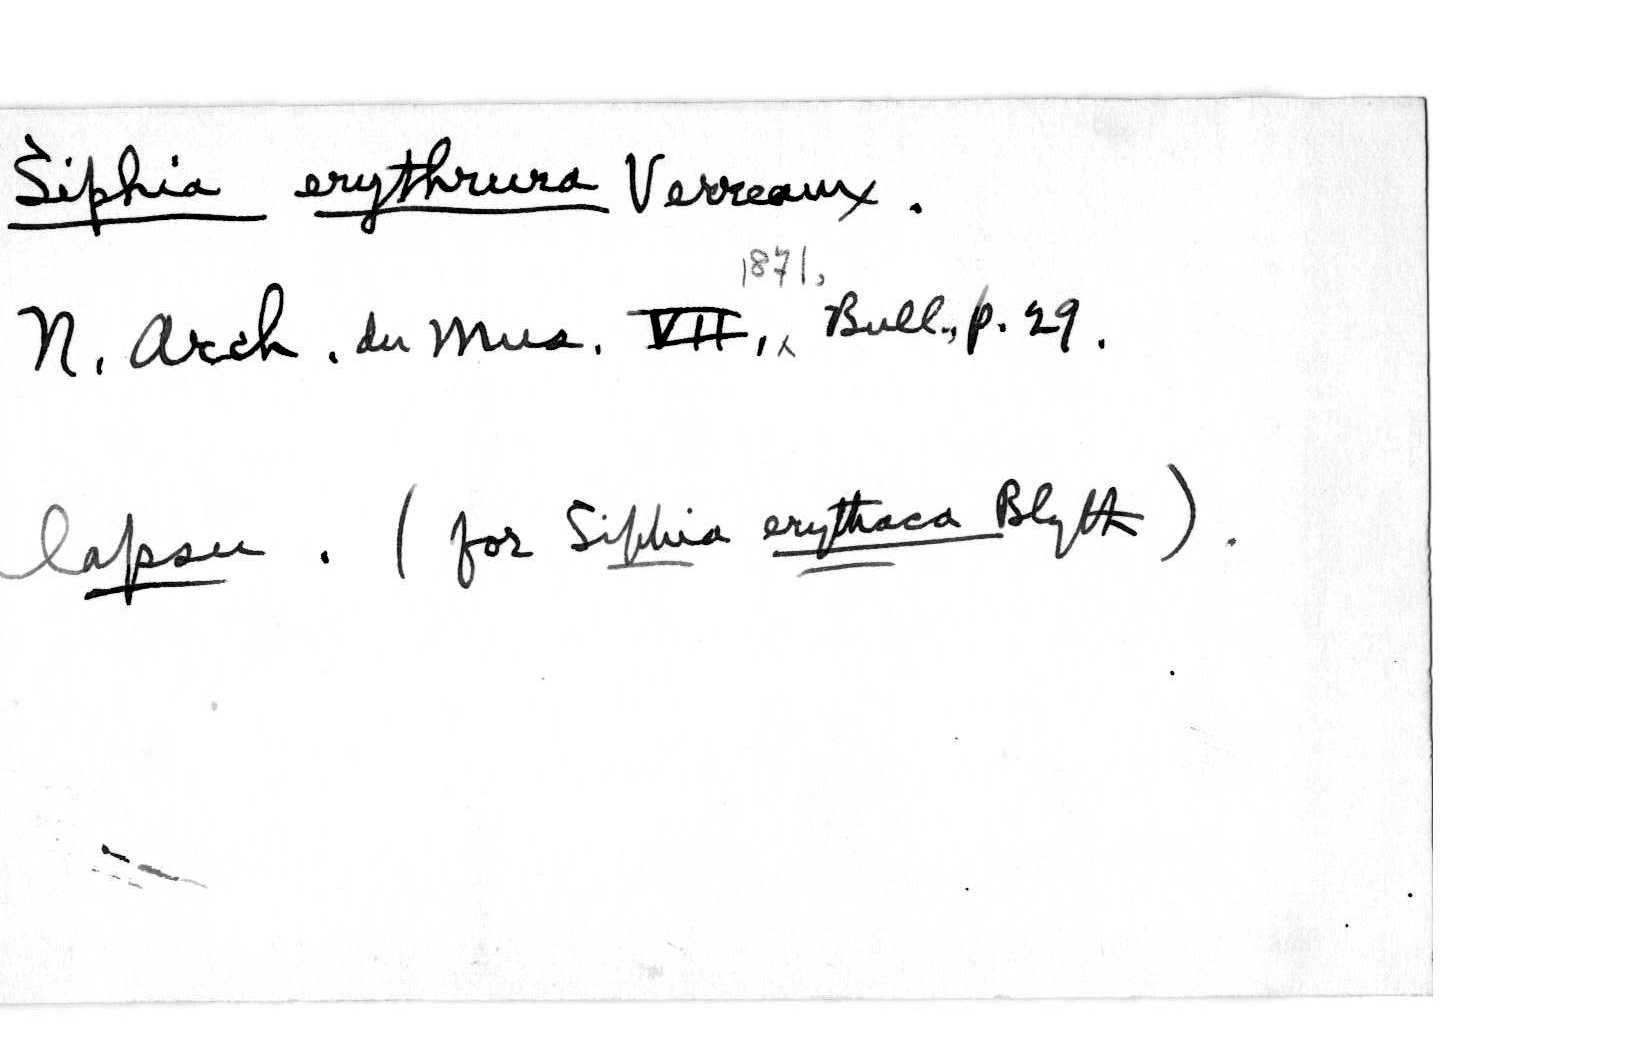 Siphia erythrura Verreaux.
N. Arch. du Mus. VII, 1871, Bull., p. 29.
lapsu. (for Siphia erythaca Blyth).